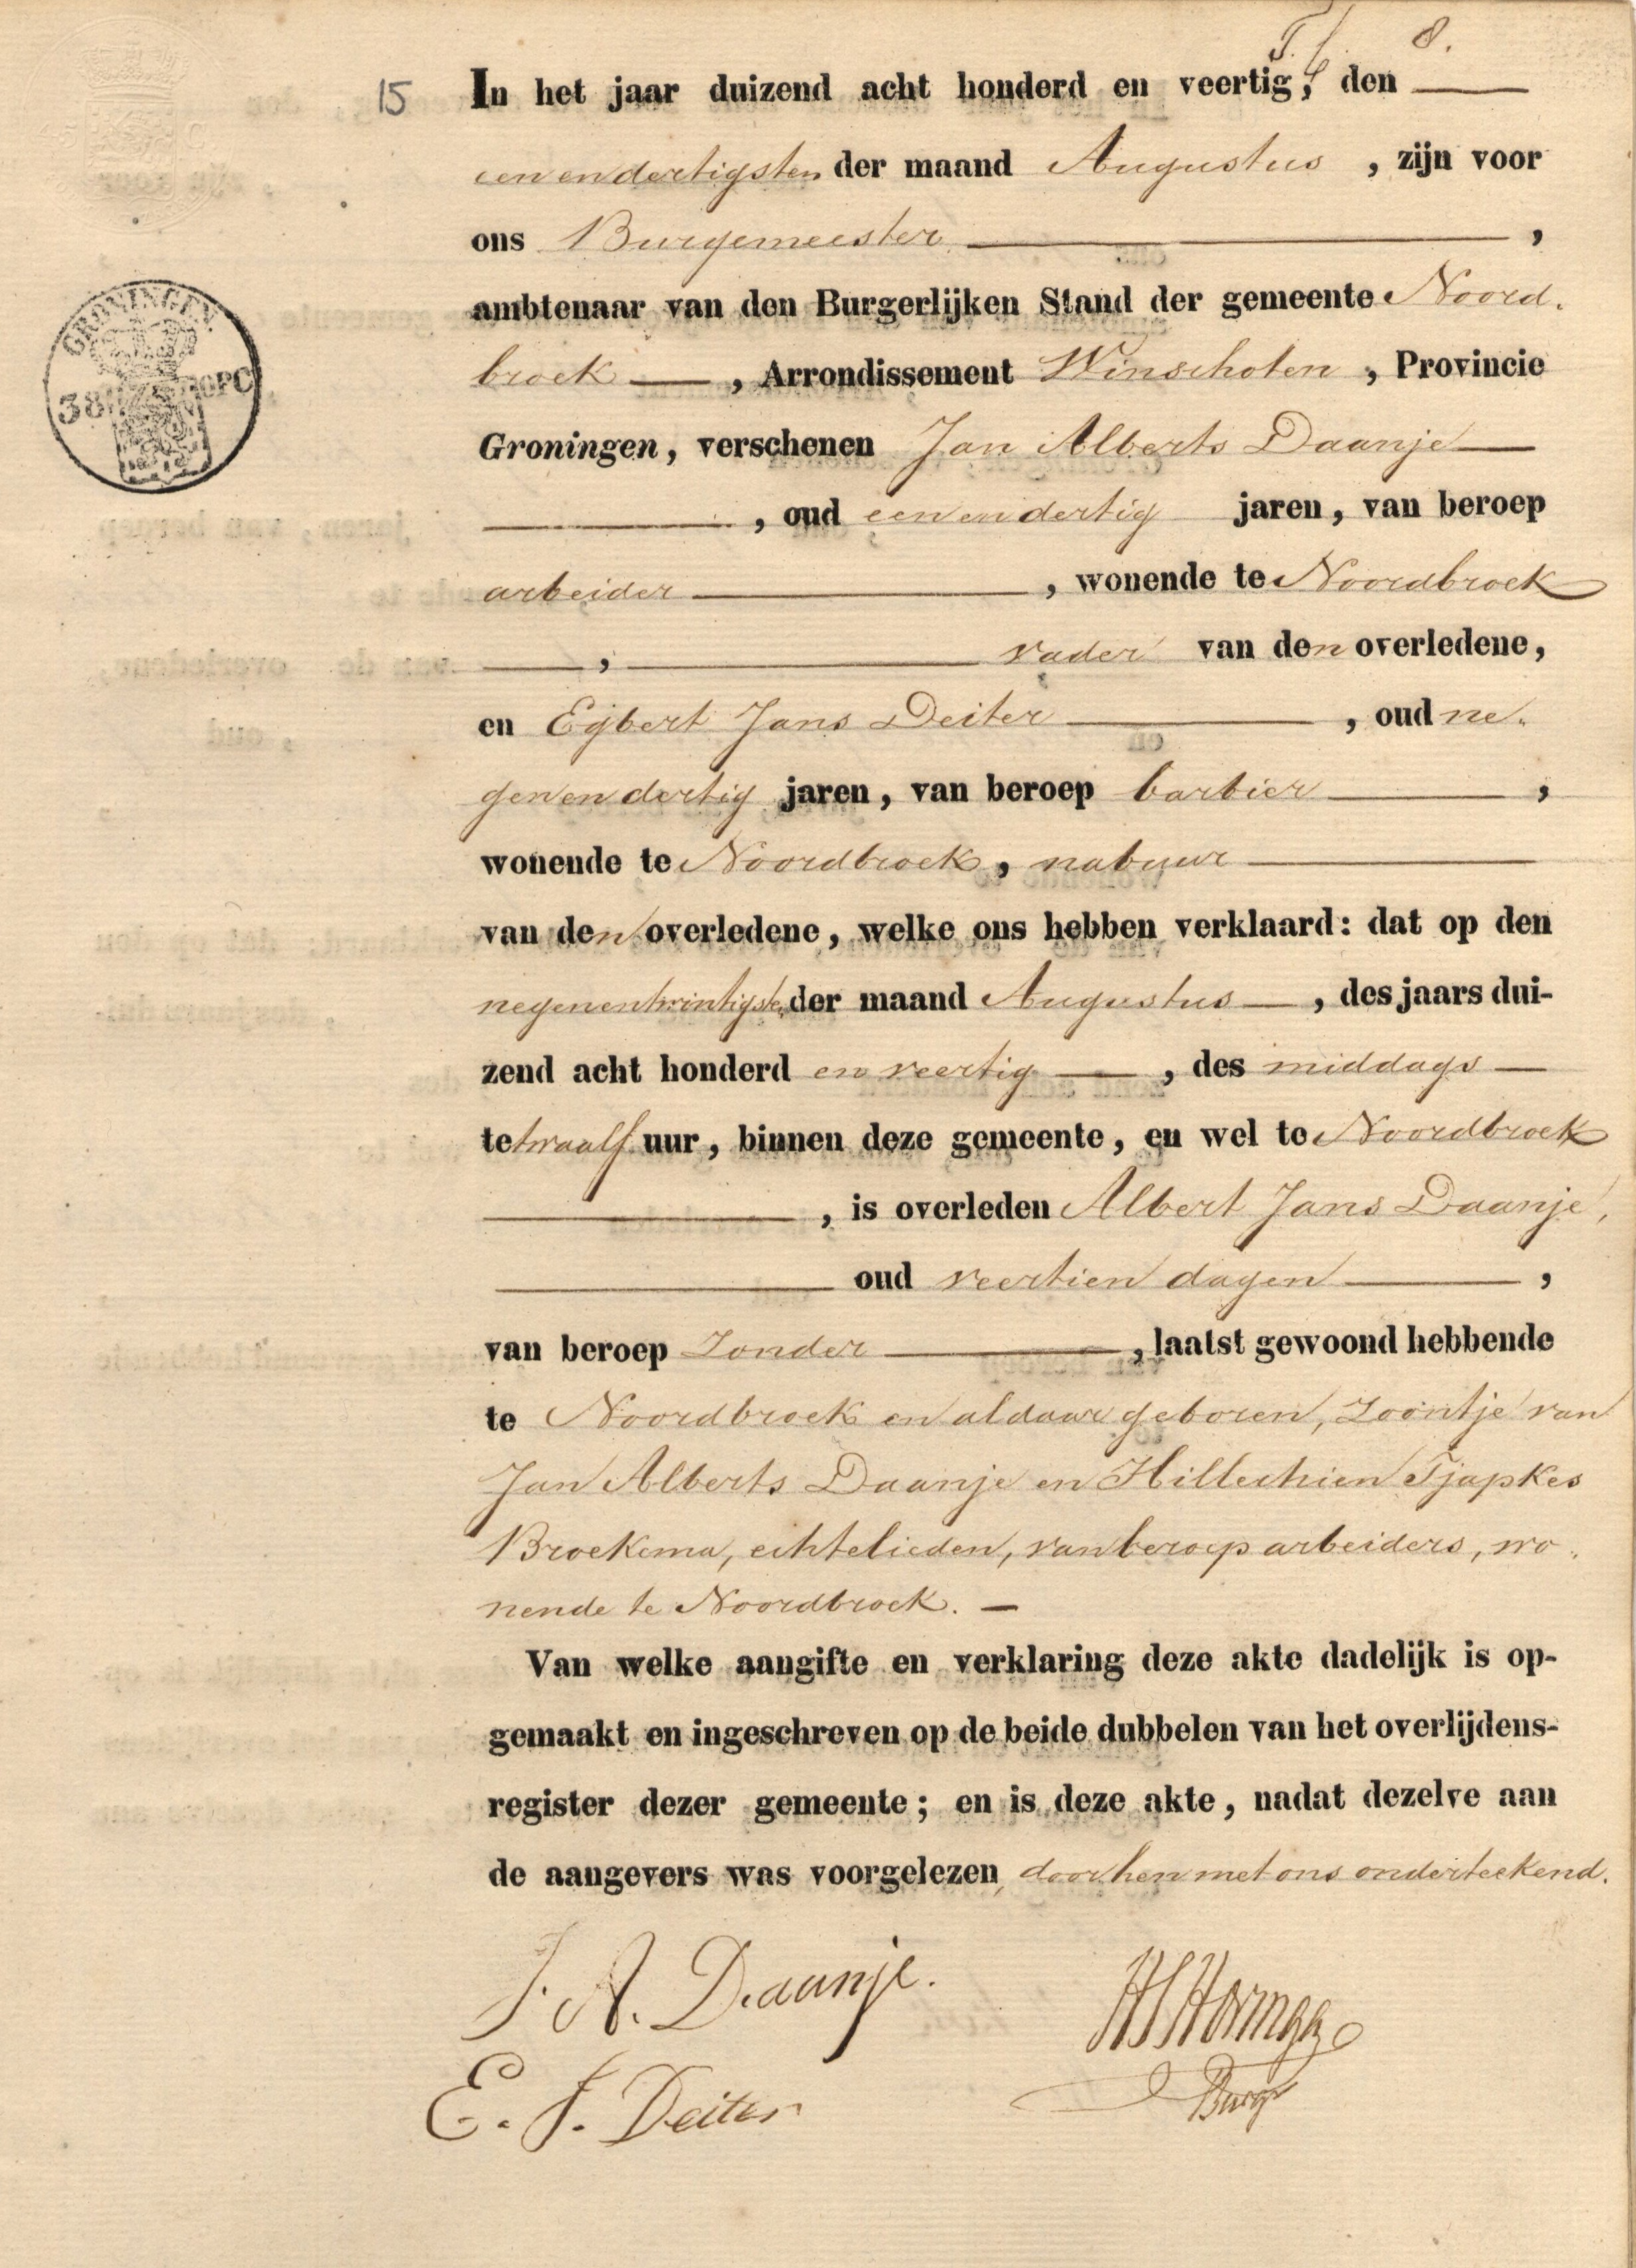 8.
15 In het jaar duizend acht honderd en veertig, den
eenendertigsten der maand Augustus, zijn voor
ons Burgemeester,
ambtenaar van den Burgerlijken Stand der gemeente Noord-
broek, Arrondissement Winschoten, Provincie
Groningen, verschenen Jan Alberts Daanje
, oud eenendertig jaren, van beroep
arbeider, wonende te Noordbroek
, vader van den overledene,
en Egbert Jans Deiter, oud ne-
genendertig jaren, van beroep barbier,
wonende te Noordbroek, nabuur
van den overledene, welke ons hebben verklaard: dat op den
negenentwintigsten der maand Augustus, des jaars dui-
zend acht honderd en veertig, des middags
te twaalf uur, binnen deze gemeente, en wel te Noordbroek
, is overleden Albert Jans Daanje,
oud veertien dagen,
van beroep Zonder, laatst gewoond hebbende
te Noordbroek en aldaar geboren, Zoontje van
Jan Alberts Daanje en Hillechien Tjapkes
Broekema, echtelieden, van beroep arbeiders, wo-
nende te Noordbroek.
Van welke aangifte en verklaring deze akte dadelijk is op-
gemaakt en ingeschreven op de beide dubbelen van het overlijdens-
register dezer gemeente; en is deze akte, nadat dezelve aan
de aangevers was voorgelezen, door hen met ons onderteekend.
J. A. Daanje.
E. J. Deiter
Burgr
GRONINGEN
38